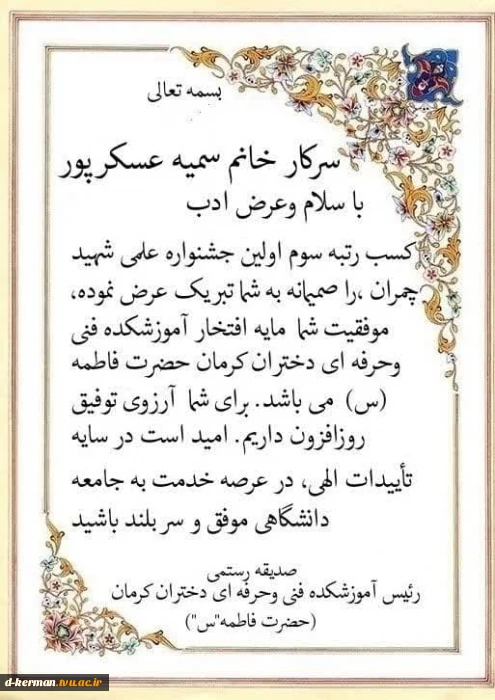 بسمه تعالی
سرکار خانم سمیه عسکرپور
با سلام وعرض ادب
کسب رتبه سوم اولین جشنواره علمی شهید
چمران ،را صمیمانه به شما تبریک عرض نموده،
موفقیت شما مایه افتخار آموزشکده فنی
وحرفه ای دختران کرمان حضرت فاطمه
(س) می باشد. برای شما آرزوی توفیق
روزافزون داریم. امید است در سایه
تأییدات الهی، در عرصه خدمت به جامعه
دانشگاهی موفق و سربلند باشید
صدیقه رستمی
رئیس آموزشکده فنی وحرفه ای دختران کرمان
(حضرت فاطمه"س")
d-kerman.tvu.ac.ir